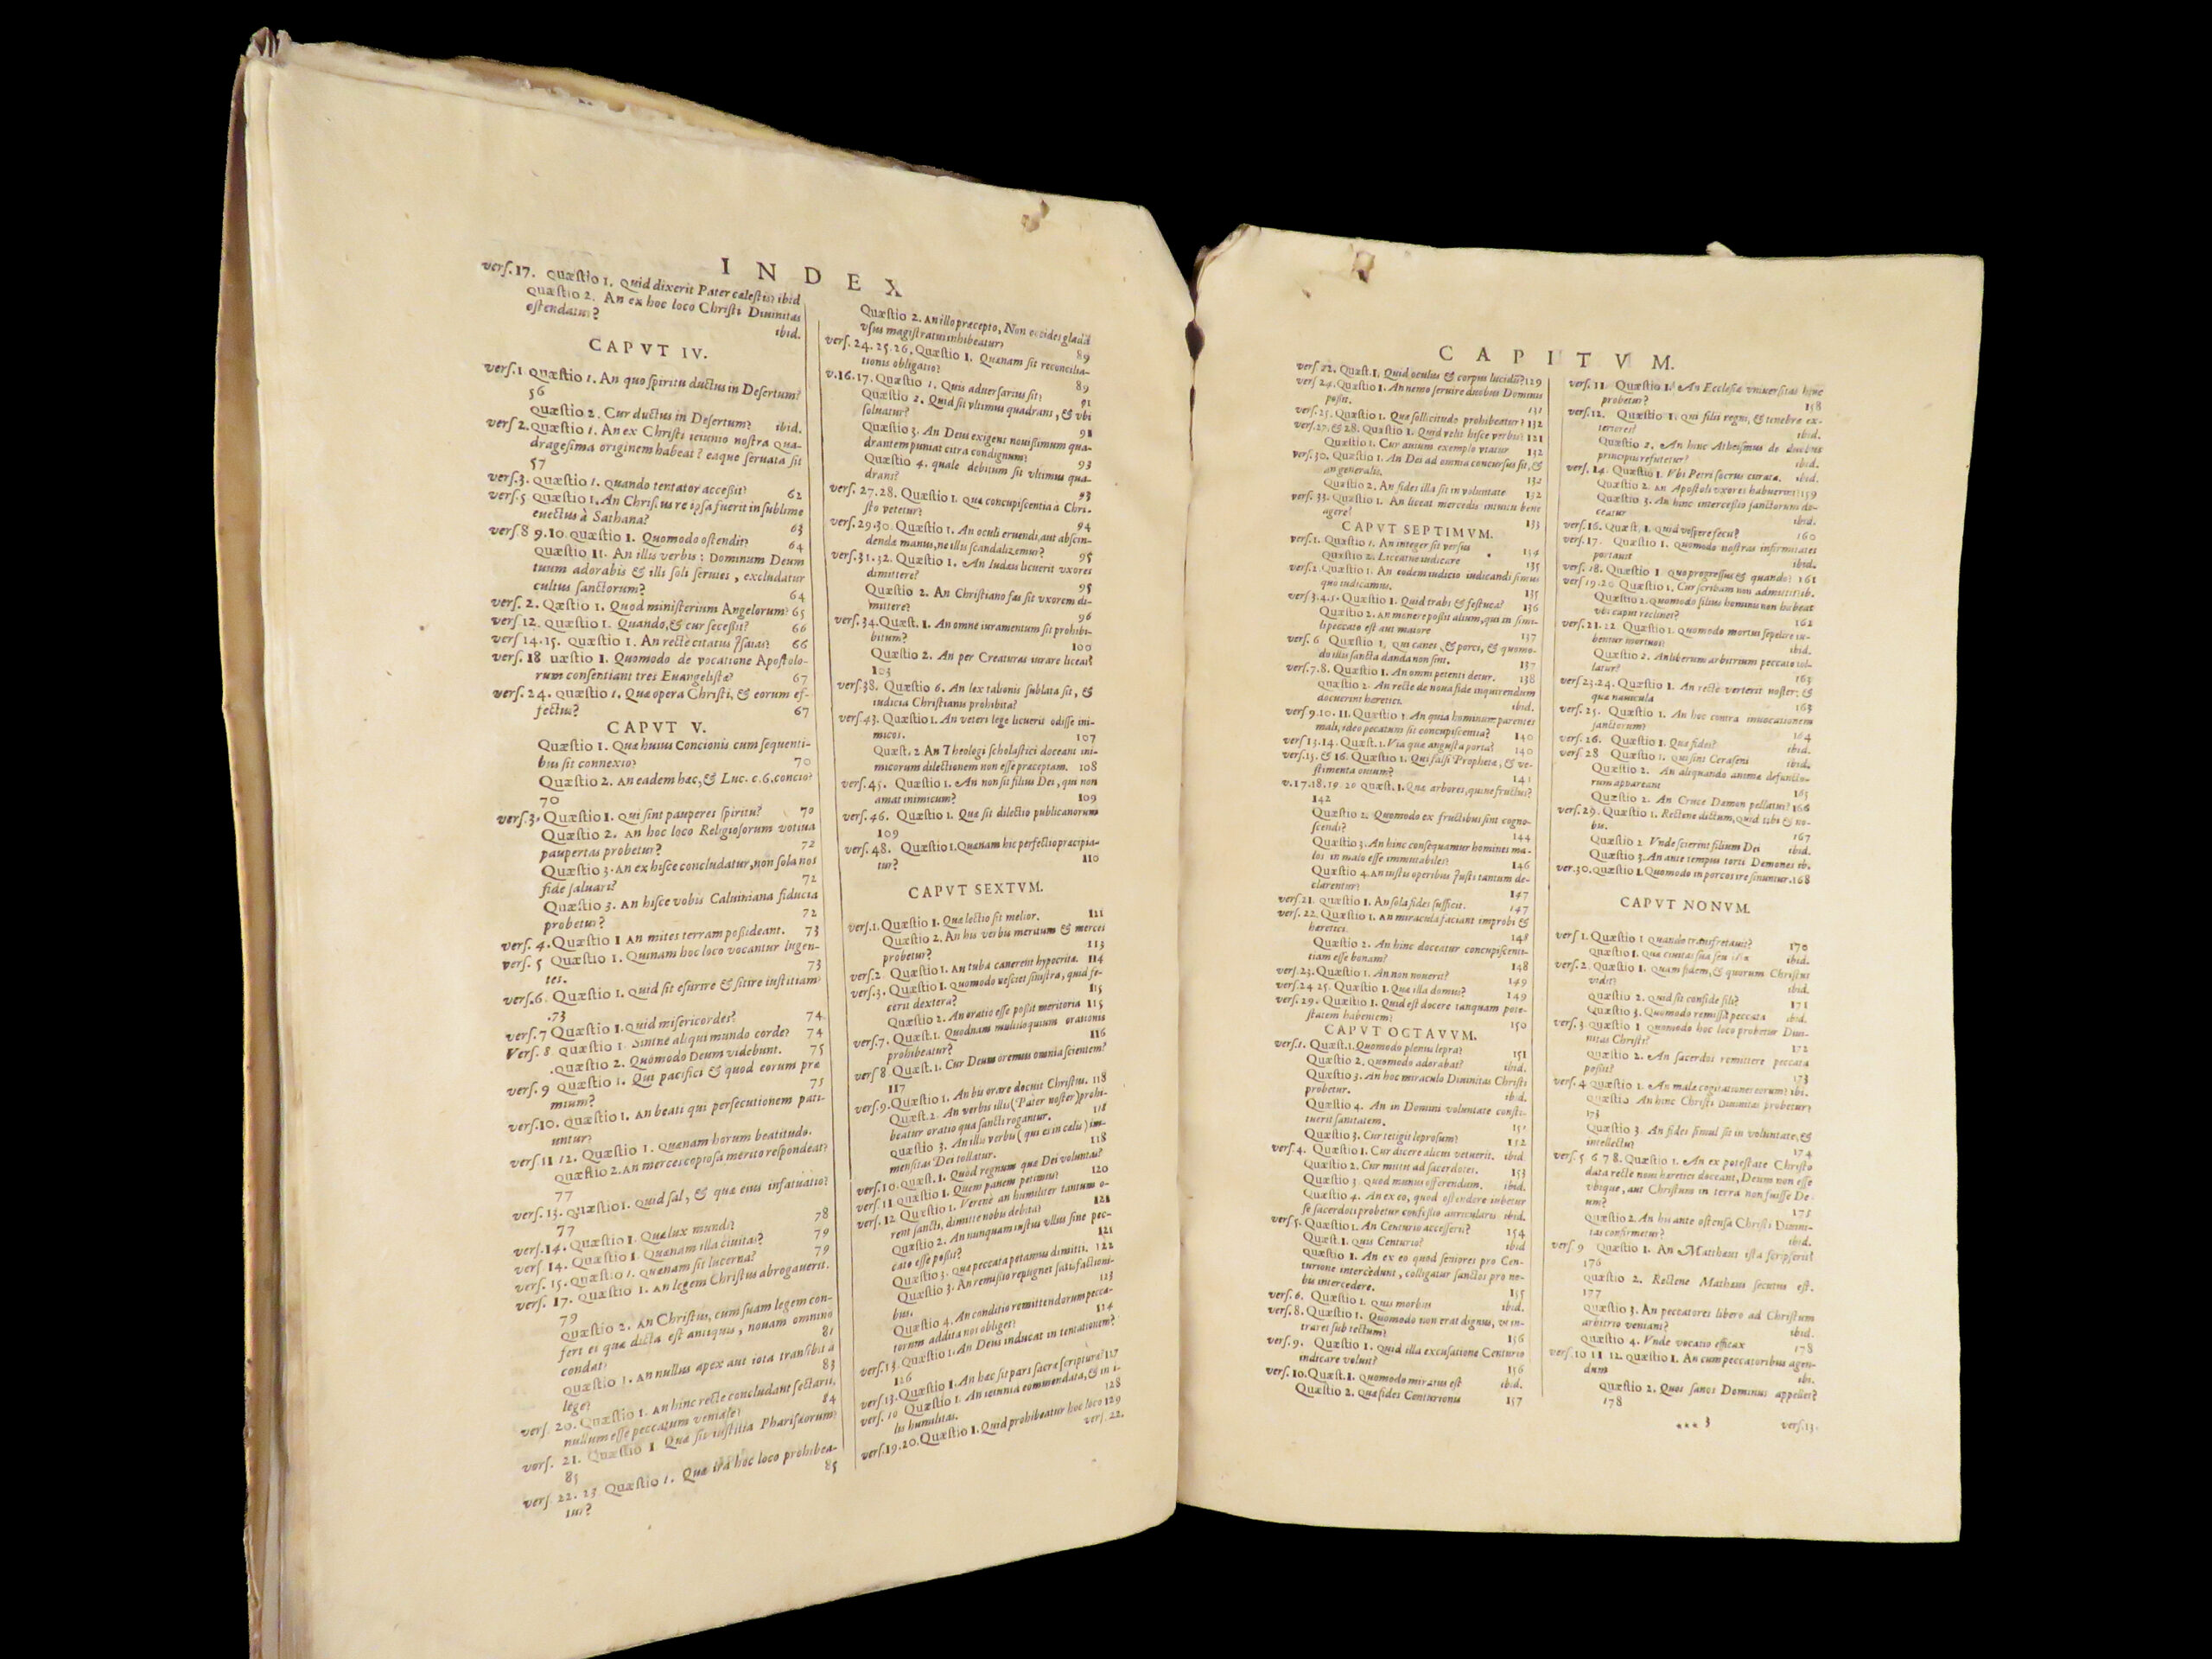 INDEX
verſ.17. Quæſtio 1. Quid dixerit Pater cæleſtis? ibid
Quæſtio 2. An ex hoc loco Chriſti Diuinitas
oſtendatur? ibid.
CAPVT IV.
verſ.1 Quæſtio 1. An quo ſpiritu ductus in Deſertum?
56
Quæſtio 2. Cur ductus in Deſertum? ibid.
verſ 2. Quæſtio 1. An ex Chriſti ieiunio noſtra Qua-
drageſima originem habeat? eaque ſeruata ſit
57
verſ.3. Quæſtio 1. Quando tentator acceſsit? 62
verſ.5 Quæſtio 1. An Chriſtus re ipſa fuerit in ſublime
euectus à Sathana? 63
verſ 8 9.10. Quæſtio 1. Quomodo oſtendit? 64
Quæſtio 11. An illis verbis: Dominum Deum
tuum adorabis & illi ſoli ſeruies, excludatur
cultus ſanctorum? 64
verſ. 2. Qæſtio 1. Quod miniſterium Angelorum? 65
verſ 12. Quæſtio 1. Quando, & cur ſeceſsit? 66
verſ 14.15. Quæſtio 1. An recte citatus Iſaias? 66
verſ. 18 uæſtio 1. Quomodo de vocatione Apoſtolo-
rum conſentiant tres Euangeliſtæ? 67
verſ. 24. Quæſtio 1. Quæ opera Chriſti, & eorum ef-
fectus? 67
CAPVT V.
Quæſtio 1. Quæ huius Concionis cum ſequenti-
bus ſit connexio? 70
Quæſtio 2. An eadem hæc, & Luc. c.6. concio?
70
verſ.3. Quæſtio 1. Qui ſint pauperes ſpiritu? 70
Quæſtio 2. An hoc loco Religioſorum votiua
paupertas probetur? 72
Quæſtio 3. An ex hiſce concludatur, non ſola nos
fide ſaluari? 72
Quæſtio 3. An hiſce vobis Caluiniana fiducia
probetur? 72
verſ. 4. Quæſtio 1 An mites terram poſsideant. 73
verſ. 5 Quæſtio 1. Quinam hoc loco vocantur lugen-
tes. 73
verſ.6. Quæſtio 1. Quid ſit eſurire & ſitire iuſtitiam?
.73
verſ.7 Quæſtio 1. Quid miſericordes? 74
Verſ. 8 Quæſtio 1. Sintne aliqui mundo corde? 74
.Quæſtio 2. Quomodo Deum videbunt. 75
verſ. 9 Quæſtio 1. Qui pacifici & quod eorum præ
mium? 75
verſ.10. Quæſtio 1. An beati qui perſecutionem pati-
untur?
verſ.11 12. Quæſtio 1. Quænam horum beatitudo.
Quæſtio 2. An merces copioſa merito reſpondeat?
77
verſ. 13. Quæſtio 1. Quid ſal, & quæ eius infatuatio?
77 78
verſ.14. Quæſtio 1. Quæ lux mundi? 79
verſ 14. Quæſtio 1. Quænam illa ciuitas? 79
verſ. 15. Quæſtio 1. Quænam ſit lucerna?
verſ. 17. Quæſtio 1. An legem Chriſtus abrogauerit.
79
Quæſtio 2. An Chriſtus, cum ſuam legem con-
fert ei quæ dicta eſt antiquis, nouam omnino
condat? 81
Quæſtio 1. An nullus apex aut iota tranſibit à
lege? 83
verſ. 20. Quæſtio 1. An hinc recte concludant ſectarii,
nullum eſſe peccatum veniale? 84
verſ. 21. Quæſtio 1 Quæ ſit iuſtitia Phariſæorum?
85
verſ. 22. 23 Quæſtio 1. Quæ ira hoc loco prohibea-
tur? 85
Quæſtio 2. An illo præcepto, Non occides gladii
vſus magiſtratui inhibeatur? 89
verſ. 24. 25. 26. Quæſtio 1. Quænam ſit reconcilia-
tionis obligatio? 89
v.16.17. Quæſtio 1. Quis aduerſarius ſit? 91
Quæſtio 2. Quid ſit vltimus quadrans, & vbi
ſoluatur? 91
Quæſtio 3. An Deus exigens nouiſsimum qua-
drantem puniat citra condignum? 93
Quæſtio 4. quale debitum ſit vltimus qua-
drans? 93
verſ. 27.28. Quæſtio 1. Quæ concupiſcentia à Chri-
ſto vetetur? 94
verſ. 29.30. Quæſtio 1. An oculi eruendi, aut abſcin-
dendæ manus, ne illis ſcandalizemur? 95
verſ.31.32. Quæſtio 1. An Iudæis licuerit vxores
dimittere? 95
Quæſtio 2. An Chriſtiano fas ſit vxorem di-
mittere? 96
verſ.34. Quæſt. 1. An omne iuramentum ſit prohibi-
bitum? 100
Quæſtio 2. An per Creaturas iurare liceat?
103
verſ.38. Quæſtio 6. An lex talionis ſublata ſit, &
iudicia Chriſtianis prohibita?
verſ.43. Quæſtio 1. An veteri lege licuerit odiſſe ini-
micos. 107
Quæſt. 2 An Theologi ſcholaſtici doceant ini-
micorum dilectionem non eſſe præceptam. 108
verſ. 45. Quæſtio 1. An non ſit filius Dei, qui non
amat inimicum? 109
verſ. 46. Quæſtio 1. Quæ ſit dilectio publicanorum
109
verſ. 48. Quæſtio 1. Quænam hic perfectio præcipia-
tur? 110
CAPVT SEXTVM.
verſ.1. Quæſtio 1. Quæ lectio ſit melior. 111
Quæſtio 2. An his verbis meritum & merces
probetur? 113
verſ.2. Quæſtio 1. An tuba canerent hypocritæ. 114
verſ.3. Quæſtio 1. Quomodo neſciet ſiniſtra, quid fe-
cerit dextera? 115
Quæſtio 2. An oratio eſſe poſsit meritoria 115
verſ.7. Quæſt.1. Quodnam multiloquium orationis
prohibeatur? 116
verſ 8 Quæſt. 1. Cur Deum oremus omnia ſcientem?
117
verſ.9. Quæſtio 1. An bis orare docuit Chriſtus. 118
Quæſt.2. An verbis illis (Pater noſter) prohi-
beatur oratio qua ſancti rogantur. 118
Quæſtio 3. An illis verbis (qui es in cælis) im-
menſitas Dei tollatur. 118
verſ.10. Quæſt.1. Quod regnum quæ Dei voluntas?
verſ.11 Quæſtio 1. Quem panem petimus? 120
verſ. 12 Quæſtio 1. Verene an humiliter tantum o-
rent ſancti, dimitte nobis debita? 121
Quæſtio 2. An nunquam iuſtus vllus ſine pec-
cato eſſe poſsit? 121
Quæſtio 3. Quæ peccata petamus dimitti. 122
Quæſtio 3. An remiſsio repugnet ſatisfactioni-
bus. 123
Quæſtio 4. An conditio remittendorum pecca-
torum addita nos obliget? 124
verſ.13. Quæſtio 1. An Deus inducat in tentationem?
126
verſ 13. Quæſtio 1. An hæc ſit pars ſacræ ſcripturæ? 127
verſ. 16 Quæſtio 1. An ieiunia commendata, & in i-
lis humilitas. 128
verſ.19.20. Quæſtio 1. Quid prohibeatur hoc loco 129
verſ. 22.
CAPITVM.
verſ 22. Quæſt.1. Quid oculus & corpus lucidū? 129
verſ 24. Quæſtio 1. An nemo ſeruire duobus Dominis
poſsit. 131
verſ.25. Quæſtio 1. Quæ ſollicitudo prohibeatur? 132
verſ.27. & 28. Quæſtio 1. Quid velit hiſce verbis? 121
Quæſtio 1. Cur auium exemplo vtatur 132
verſ. 30. Quæſtio 1. An Dei ad omnia concurſus ſit, &
an generalis. 132
Quæſtio 2. An fides illa ſit in voluntate 132
verſ. 33. Quæſtio 1. An liceat mercedis intuitu bene
agere? 133
CAPVT SEPTIMVM.
verſ.1. Quæſtio 1. An integer ſit verſus 134
Quæſtio 2. Liceatne iudicare 135
verſ.2 Quæſtio 1. An eodem iudicio iudicandi ſimus
quo iudicamus. 135
verſ 3.4.5. Quæſtio 1. Quid trabs & feſtuca? 136
Quæſtio 2. An monere poſsit alium, qui in ſimi-
li peccato eſt aut maiore 137
verſ. 6 Quæſtio 1. Qui canes, & porci, & quomo-
do illis ſancta danda non ſint. 137
verſ.7.8. Quæſtio 1. An omni petenti detur. 138
Quæſtio 2. An recte de noua fide inquirendum
docuerint heretici. ibid.
verſ 9.10. 11. Quæſtio 1. An quia hominum parentes
mali, ideo pecatum ſit concupiſcentia? 140
verſ 13.14. Quæſt.1. Via quæ anguſta porta? 140
verſ.15. & 16. Quæſtio 1. Qui falſi Prophetæ, & ve-
ſtimenta ouium? 141
v.17.18.19.20 Quæſt.1. Quæ arbores, quiue fructus?
142
Quæſtio 2. Quomodo ex fructibus ſint cogno-
ſcendi? 144
Quæſtio 3. An hinc conſequamur homines ma-
los in malo eſſe immutabiles? 146
Quæſtio 4. An iuſtis operibus Iuſti tantum de-
clarentur? 147
verſ.21. Quæſtio 1. An ſola fides ſufficit. 147
verſ. 22. Quæſtio 1. An miracula faciant improbi &
heretici. 148
Quæſtio 2. An hinc doceatur concupiſcenti-
tiam eſſe bonam? 148
verſ.23. Quæſtio 1. An non nouerit? 149
verſ.24 25. Quæſtio 1. Quæ illa domus? 149
verſ. 29. Quæſtio 1. Quid eſt docere tanquam pote-
ſtatem habentem? 150
CAPVT OCTAVVM.
verſ.1. Quæſt.1. Quomodo plenus lepra? 151
Quæſtio 2. Quomodo adorabat? ibid.
Quæſtio 3. An hoc miraculo Diuinitas Chriſti
probetur. ibid.
Quæſtio 4. An in Domini voluntate conſti-
tuerit ſanitatem. 151
Quæſtio 3. Cur tetigit leproſum? 152
verſ.4. Quæſtio 1. Cur dicere alicui vetuerit. ibid
Quæſtio 2. Cur mittit ad ſacerdotes. 153
Quæſtio 3. Quod munus offerendum. ibid.
Quæſtio 4. An ex eo, quod oſtendere iubetur
ſe ſacerdoti probetur confeſsio auricularis ibid.
verſ 5. Quæſtio 1. An Centurio acceſſerit? 154
Quæſt.1. Quis Centurio? ibid
Quæſtio 1. An ex eo quod ſeniores pro Cen-
turione intercedunt, colligatur ſanctos pro no-
bis intercedere. 155
verſ.6. Quæſtio 1. Quis morbus ibid.
verſ.8. Quæſtio 1. Quomodo non erat dignus, vt in-
traret ſub tectum? 156
verſ. 9. Quæſtio 1. Quid illa excuſatione Centurio
indicare voluit? 156
verſ.10. Quæſt.1. Quomodo miratus eſt ibid.
Quæſtio 2. Quæ fides Centurionis 157
verſ. 11. Quæſtio 1. An Eccleſiæ vniuerſitas hinc
probetur? 158
verſ.12. Quæſtio 1. Qui filii regni, & tenebræ ex-
teriores? ibid.
Quæſtio 2. An hinc Atheiſmus de duobus
principiis refutetur? ibid.
verſ. 14. Quæſtio 1. Vbi Petri ſocrus curata. ibid.
Quæſtio 2. An Apoſtoli vxores habuerint? 159
Quæſtio 3. An hinc interceſsio ſanctorum do-
ceatur ibid.
verſ.16. Quæſt. 1. Quid veſpere fecit? 160
verſ.17. Quæſtio 1. Quomodo noſtras infirmitates
portauit ibid.
verſ. 18. Quæſtio 1 Quo progreſſus & quando? 161
verſ 19.20 Quæſtio 1. Cur ſcribam non admittit? ib.
Quæſtio 2. Quomodo filius hominis non habeat
vbi caput reclinet? 162
verſ.21.22. Quæſtio 1. Quomodo mortui ſepelire iu-
bentur mortuos? ibid.
Quæſtio 2. An liberum arbitrium peccato tol-
latur? 163
verſ 23.24. Quæſtio 1. An recte verterit noſter: &
quæ nauicula 163
verſ. 25. Quæſtio 1. An hoc contra inuocationem
ſanctorum? 164
verſ. 26. Quæſtio 1. Quæ fides? ibid.
verſ 28 Quæſtio 1. Qui ſint Geraſeni ibid.
Quæſtio 2. An aliquando animæ defuncto-
rum appareant 165
Quæſtio 2. An Cruce Dæmon pellatur? 166
verſ.29. Quæſtio 1. Rectene dictum, quid tibi & no-
bis. 167
Quæſtio 2 Vnde ſcierint filium Dei ibid.
Quæſtio 3. An ante tempus torti Demones ib.
ver.30. Quæſtio 1. Quomodo in porcos ire ſinuntur. 168
CAPVT NONVM.
verſ 1. Quæſtio 1 Quando transfretauit? 170
Quæſtio 1. Quæ ciuitas ſua ſeu illius ibid.
verſ.2. Quæſtio 1. Quam fidem, & quorum Chriſtus
vidit? ibid.
Quæſtio 2. Quid ſit confide fili? 171
Quæſtio 3. Quomodo remiſſa peccata ibid.
verſ.3 Quæſtio 1 Quomodo hoc loco probetur Diui-
nitas Chriſti? 172
Quæſtio 2. An ſacerdos remittere peccata
poſsit? 173
verſ.4 Quæſtio 1. An malæ cogitationes eorum? ibi.
Quæſtio An hinc Chriſti Diuinitas probetur?
173
Quæſtio 3. An fides ſimul ſit in voluntate, &
intellectu? 174
verſ.5 6 7 8. Quæſtio 1. An ex poteſtate Chriſto
data recte noui heretici doceant, Deum non eſſe
vbique, aut Chriſtum in terra non fuiſſe De
um? 175
Quæſtio 2. An his ante oſtenſa Chriſti Diuini-
tas confirmetur? ibid.
verſ 9 Quæſtio 1. An Mattheus iſta ſcripſerit?
176
Quæſtio 2. Rectene Matheus ſecutus eſt.
177
Quæſtio 3. An peccatores libero ad Chriſtum
arbitrio veniant? ibid.
Quæſtio 4. Vnde vocatio efficax 178
verſ.10 11 12. Quæſtio 1. An cum peccatoribus agen-
dum ibi.
Quæſtio 2. Quos ſanos Dominus appellet?
178
*** 3 verſ.13.